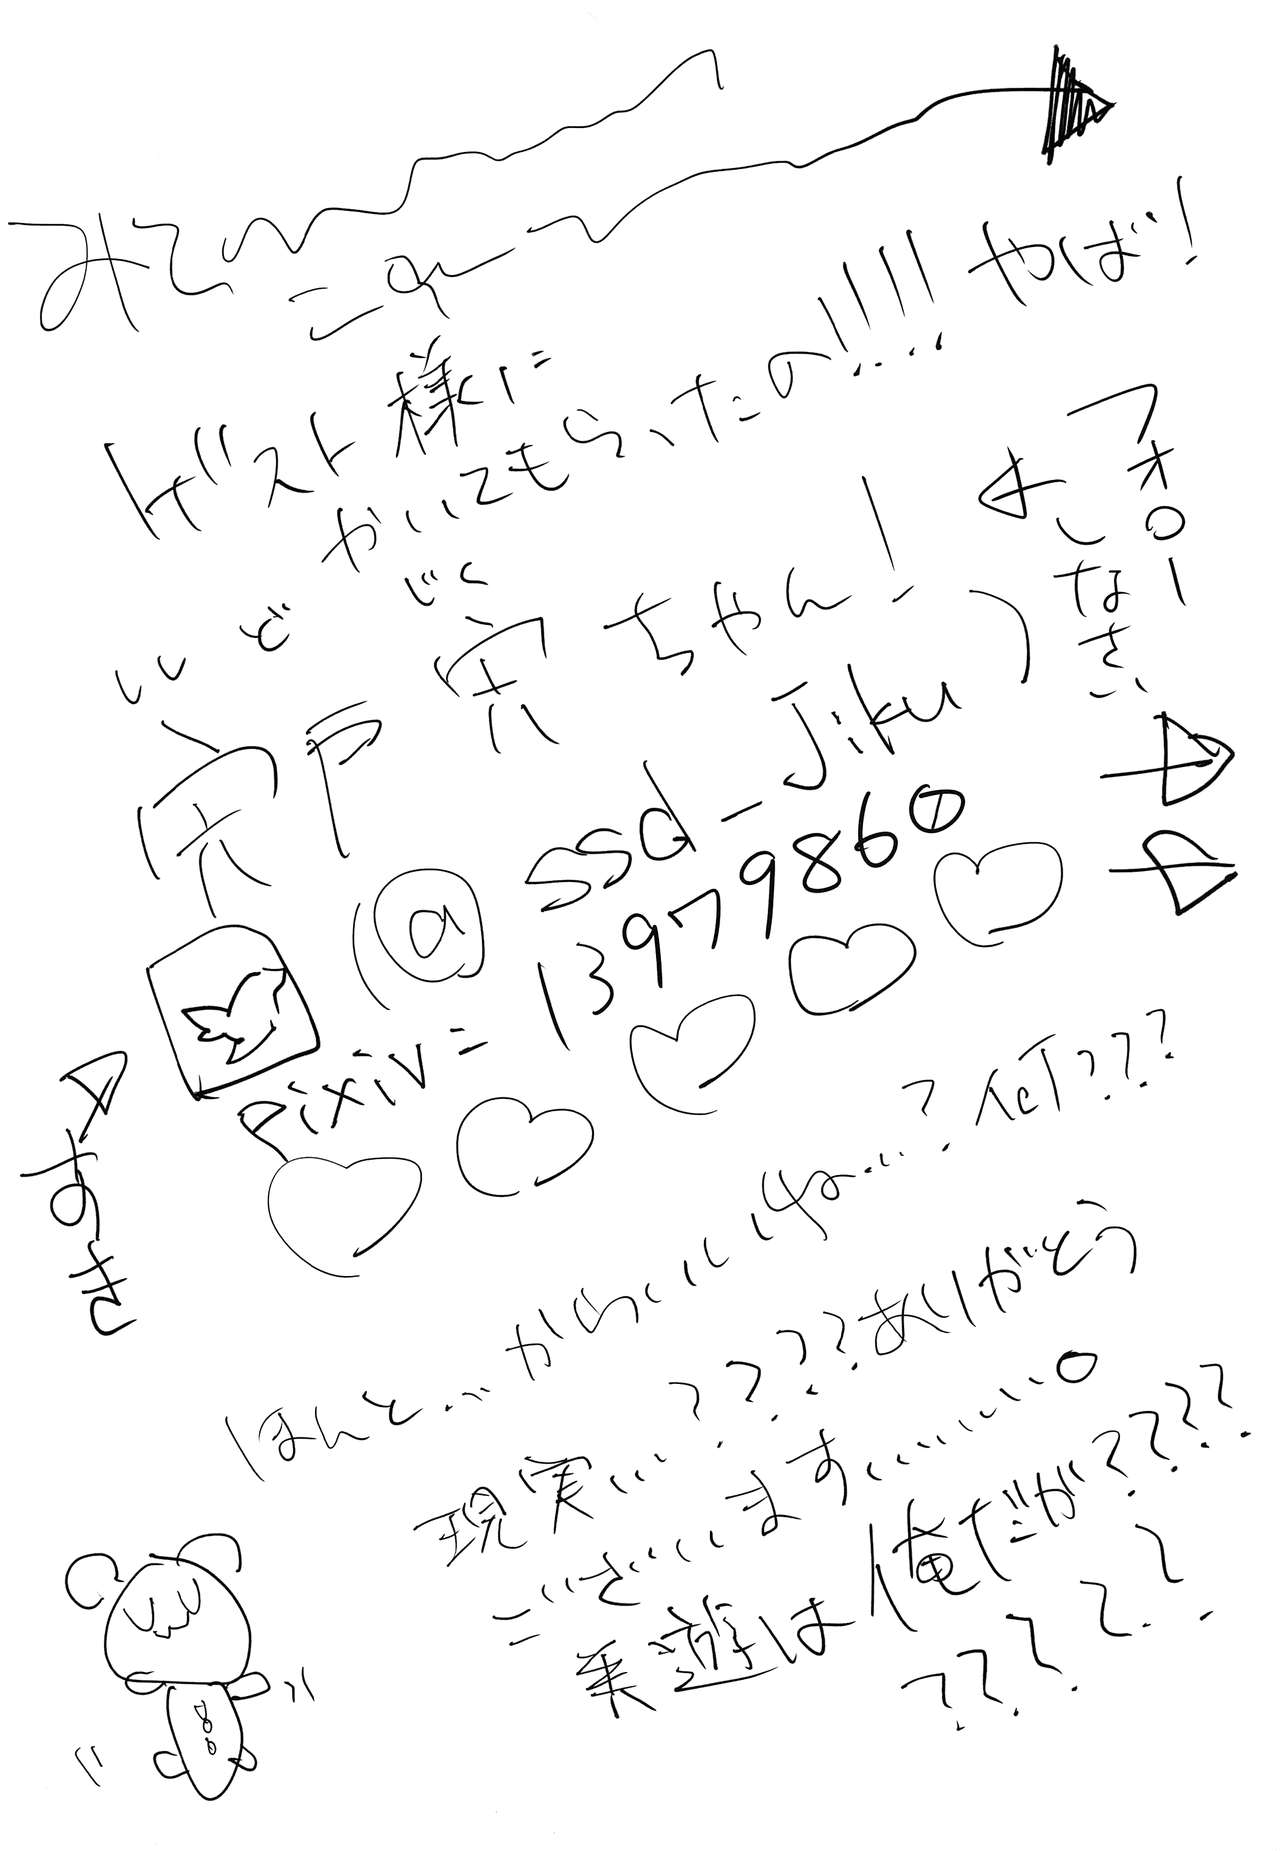 みて
これ
ゲスト様に
かいてもらったの!!!!やば!
フォロー
しなさい
ししど じく
宍戸 宍ちゃん!
(@ssd_Jiku)
pixiv=13979860
あき
ほんと...かわいいね...?何???
現実...????ありがとう
ございます......。
乗遊は俺だが????
?????